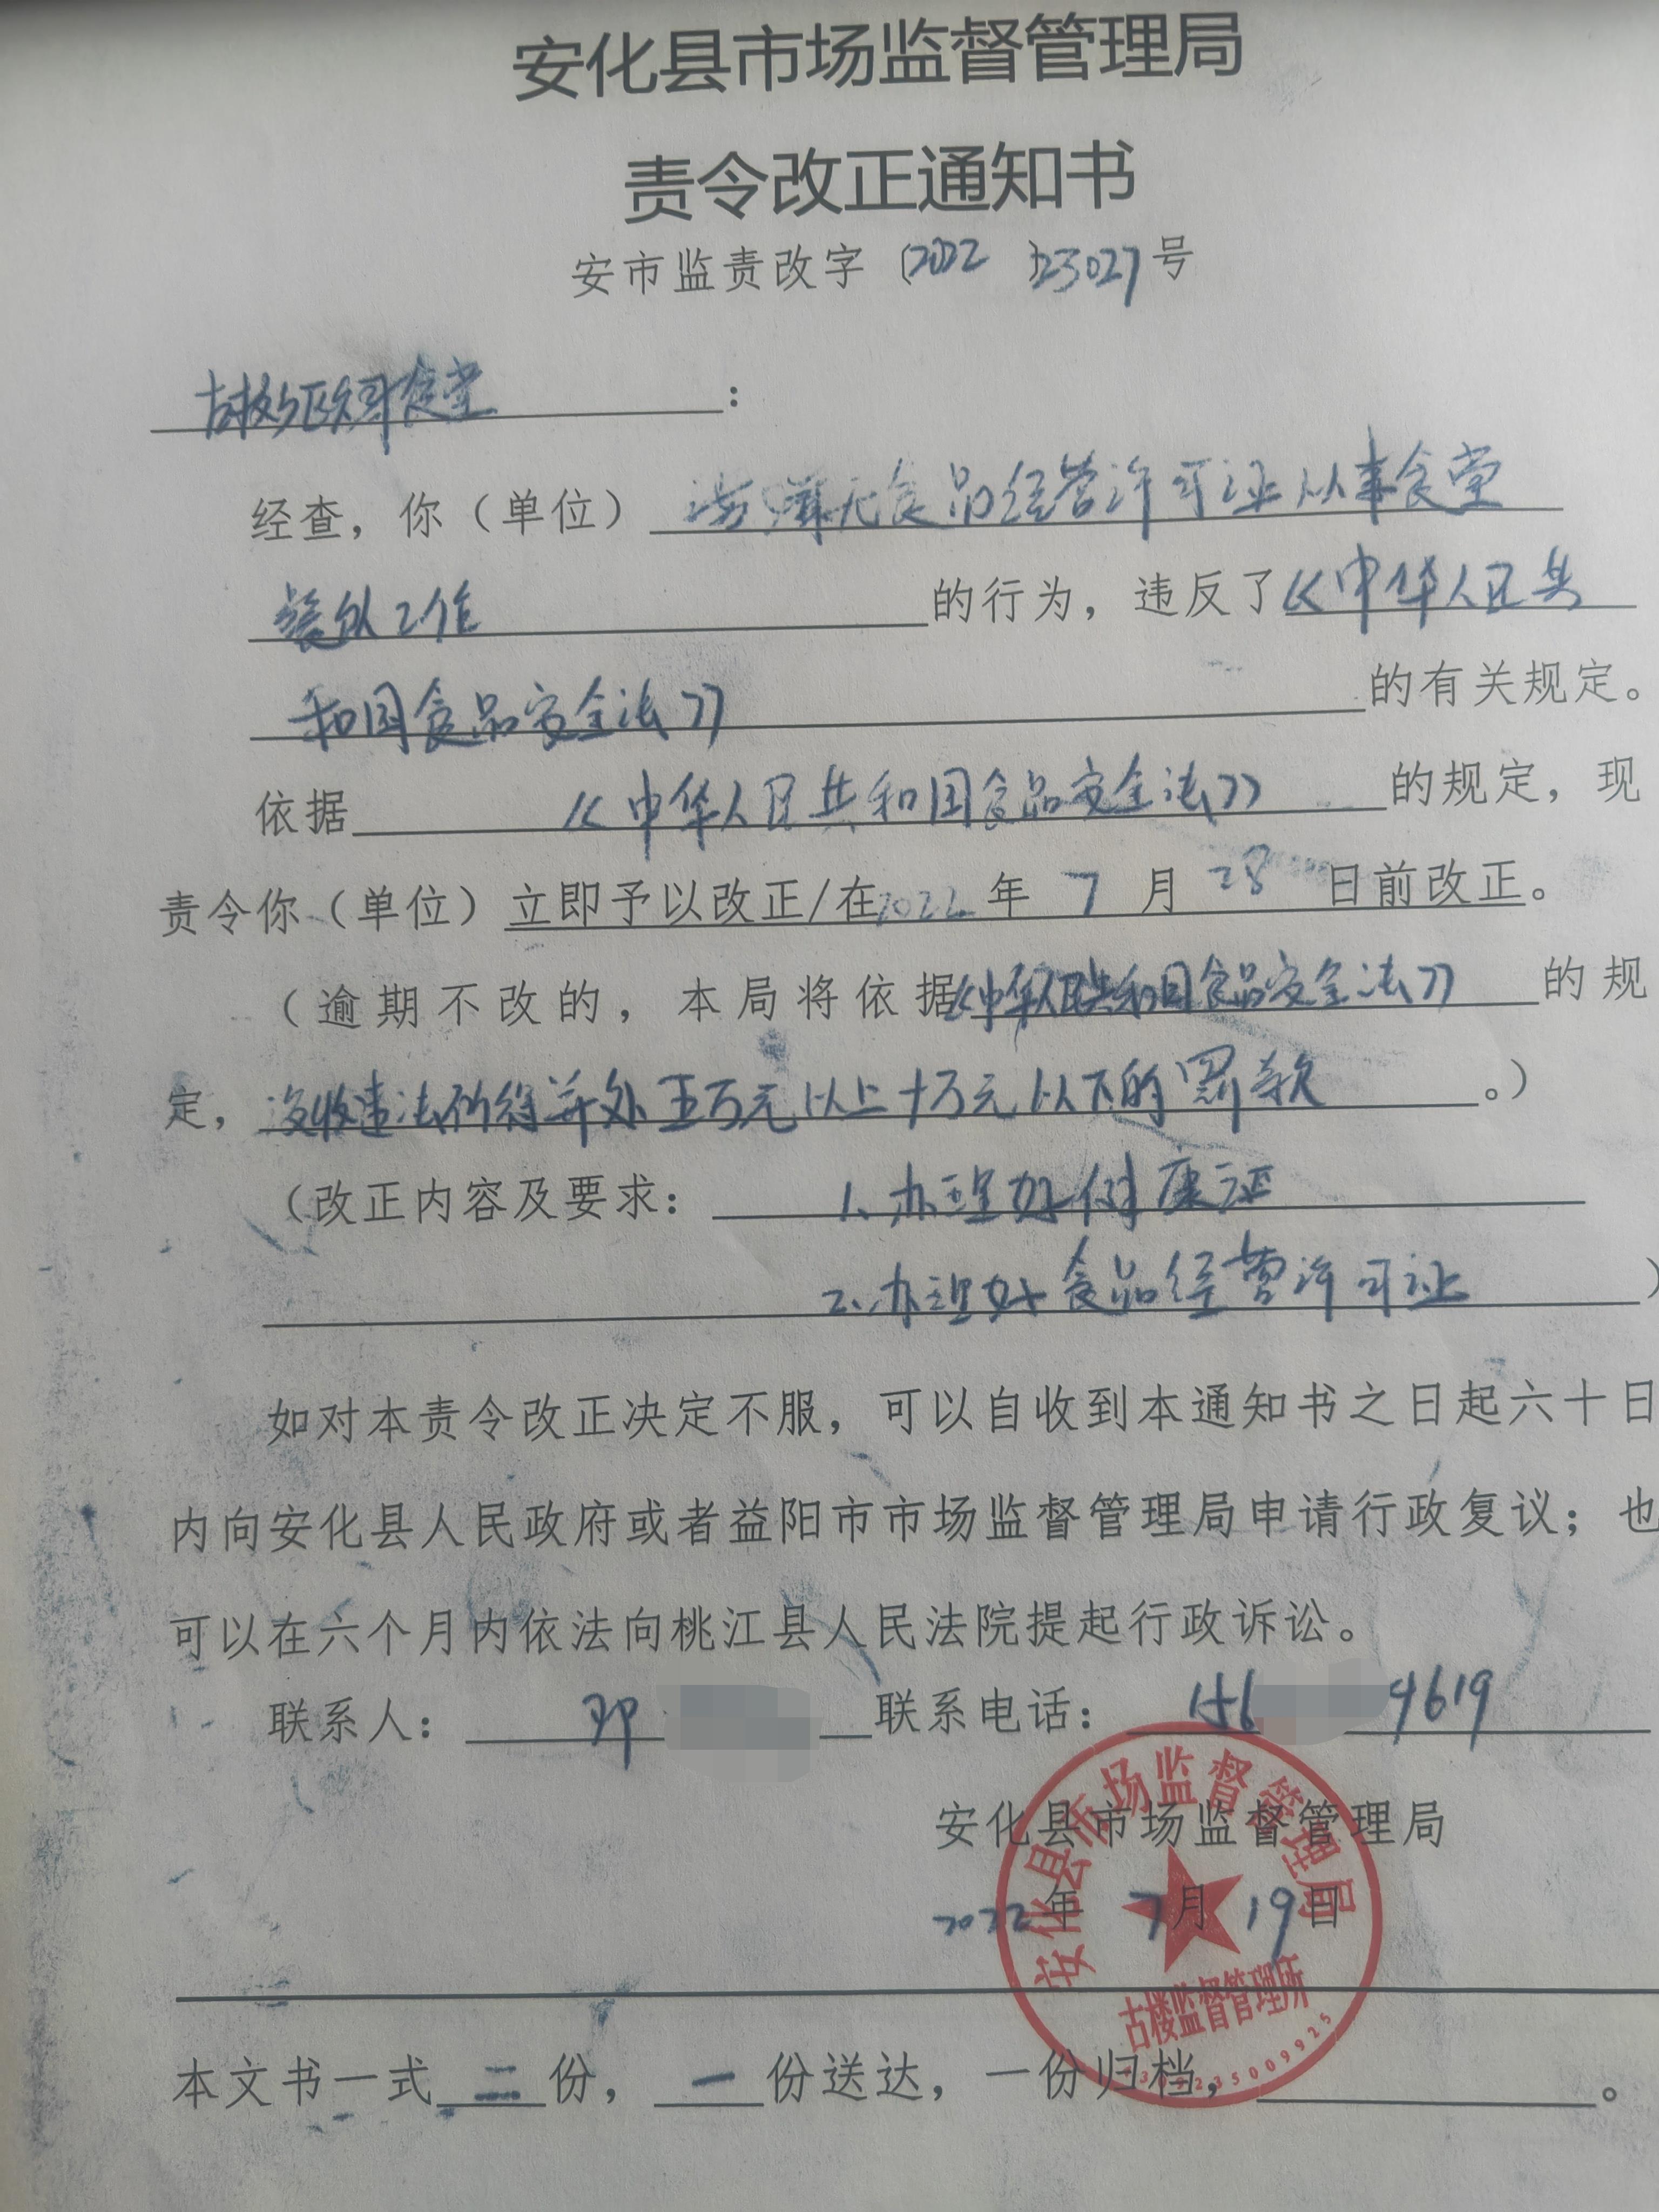 安化县市场监督管理局
责令改正通知书
安市监责改字〔2022 〕23027号
古楼乡政府食堂:
经查，你（单位） 无食品经营许可证从事食堂
餐饮工作 的行为，违反了《中华人民共
和国食品安全法》 的有关规定。
依据 《中华人民共和国食品安全法》 的规定，现
责令你（单位）立即予以改正/在2022年 7 月 28 日前改正。
（逾期不改的，本局将依据《中华人民共和国食品安全法》 的规
定，没收违法所得并处五万元以上十万元以下的罚款 。）
（改正内容及要求： 1、办理好健康证
2、办理好食品经营许可证 ）
如对本责令改正决定不服，可以自收到本通知书之日起六十日
内向安化县人民政府或者益阳市市场监督管理局申请行政复议；也
可以在六个月内依法向桃江县人民法院提起行政诉讼。
联系人： 邓 联系电话： 156 4619
安化县市场监督管理局
2022年 7月 19日
安化县市场监督管理局
古楼监督管理所
本文书一式 二 份， 一 份送达，一份归档， 。